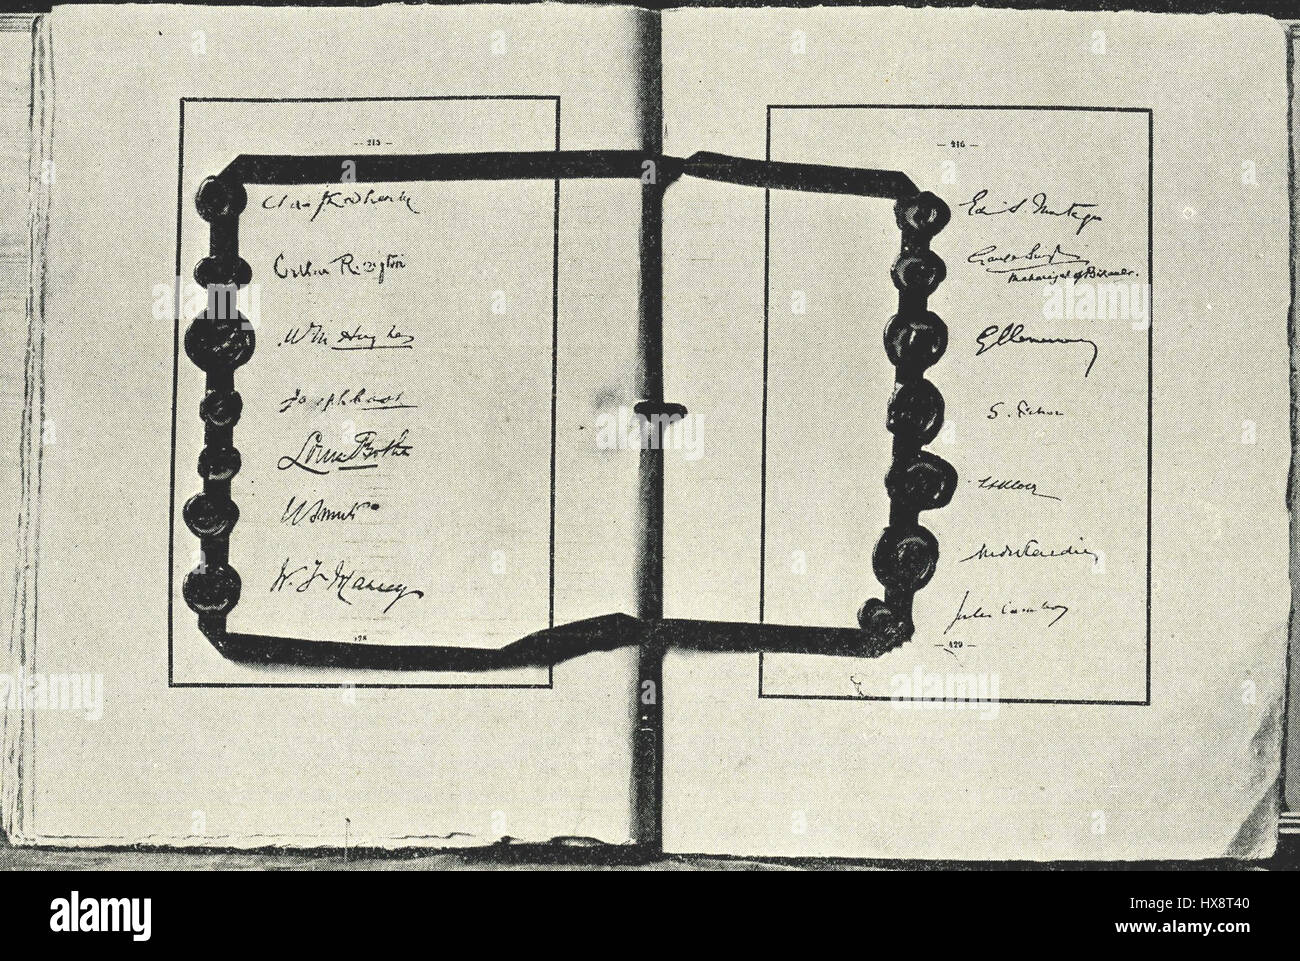 — 215 —
Chas J Doherty
Arthur L. Sifton
W M Hughes
Joseph Cook
Louis Botha
J C Smuts
W. F. Massey
428
— 216 —
Ed. S. Montagu
Ganga Singh
Maharaja of Bikaner.
G Clemenceau
S. Pichon
L L Klotz
André Tardieu
Jules Cambon
— 429 —
alamy
Image ID: HX8T40
www.alamy.com